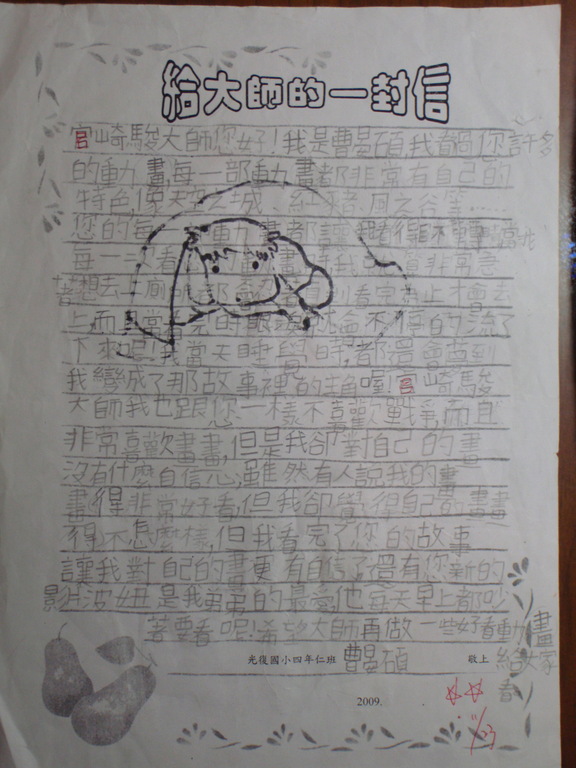 給大師的一封信
宮崎駿大師您好!我是曹晏碩,我看過您許多
的動畫每一部動畫都非常有自己的
特色,像天空之城、紅豬、風之谷等……
您的每 動畫都讓我看得
每一 看 我
想去上廁所都會 到看完為止才會去
上而 當 完時眼淚就會不停的流了
下來呢!我當天睡覺時,都還會夢到
我變成了那故事裡的主角喔!宮崎駿
大師我也跟您一樣不喜歡戰爭,而且
非常喜歡畫畫,但是我卻對自己的畫
沒有什麼自信心,雖然有人說我的畫
畫得非常好看,但我卻覺得自己的畫畫
得不怎麼樣,但我看完了您的故事
讓我對自己的畫更有自信了還有您新的
影片波妞是我弟弟的最愛,他每天早上都吵
著要看呢!希望大師再做一些好看動畫
給大家看
光復國小四年仁班 曹晏碩 敬上
2009.
11/23